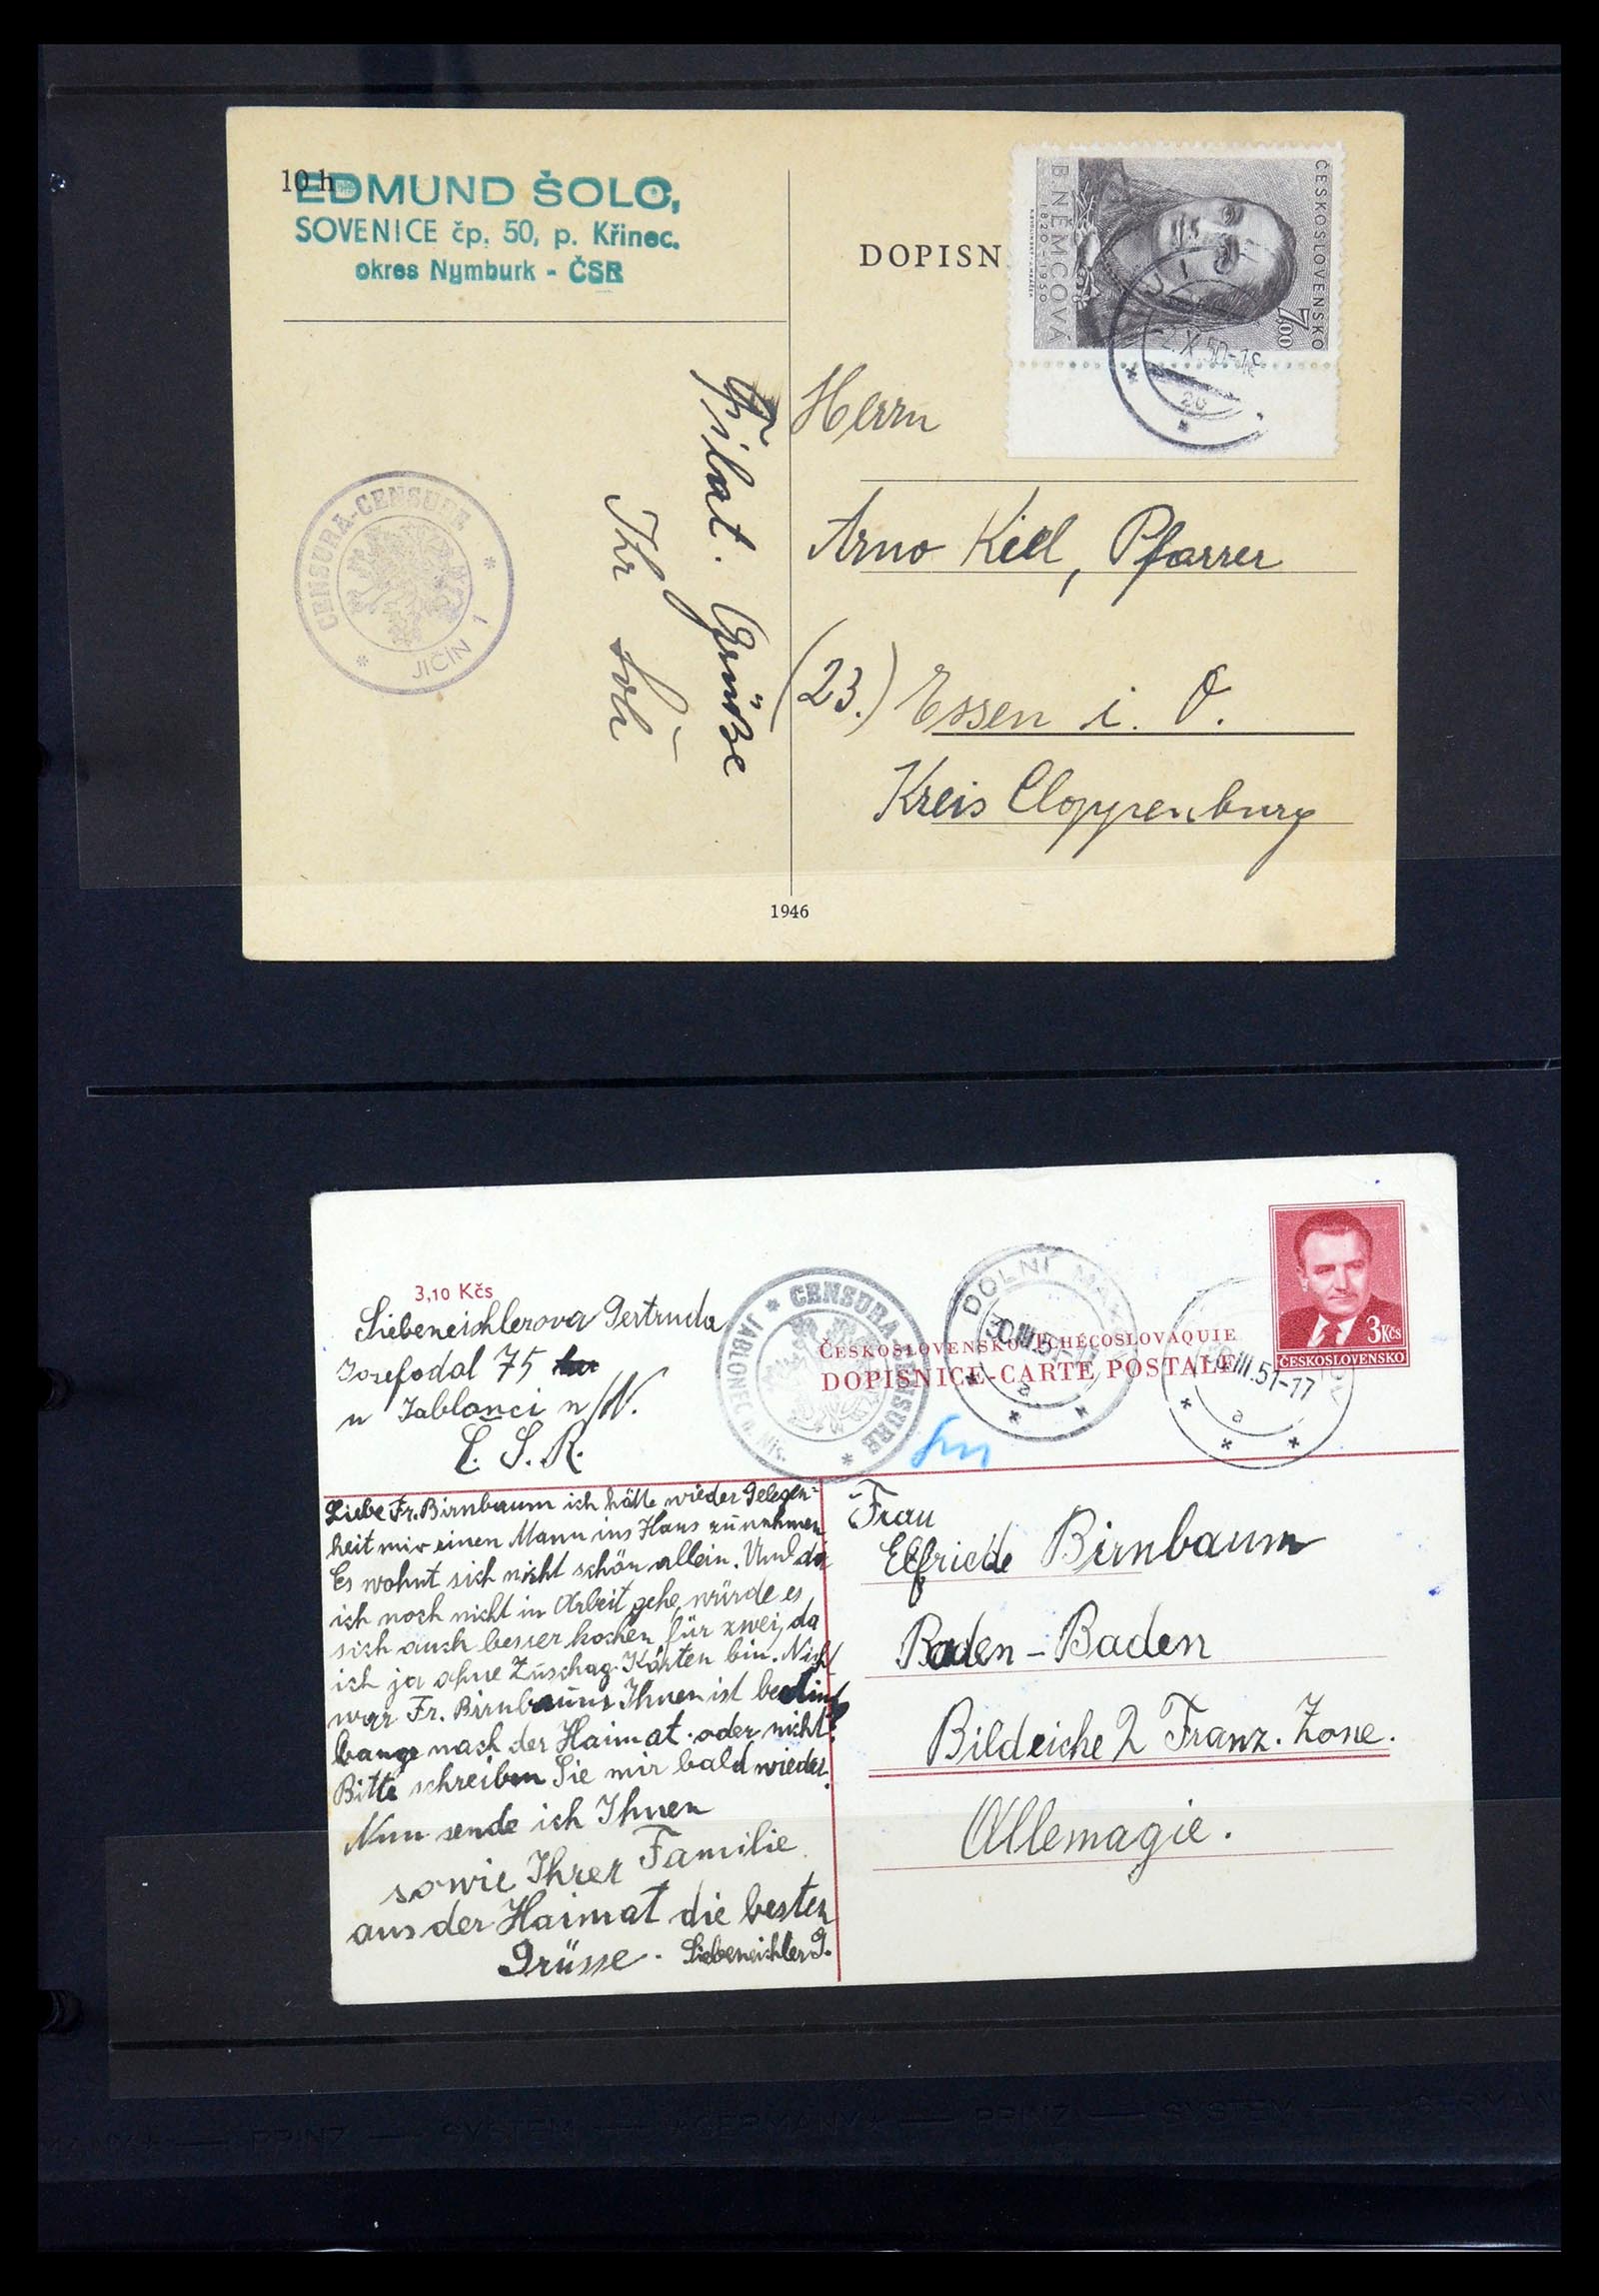 10 h
EDMUND ŠOLC,
SOVENICE čp. 50, p. Křinec.
okres Nymburk - ČSR
DOPISN
ČESKOSLOVENSKO
7,00
B. NĚMCOVÁ
1820-1950
2.X.50
CENSURA-CENSURE
* JIČÍN 1 *
Filat. Grüße
Ihr Šolc
Herrn
Arno Kiel, Pfarrer
(23.) Essen i. O.
Kreis Cloppenburg
1946
3,10 Kčs
Siebeneichlerova Gertruda
Josefodal 75
u Jablonci n/N.
Č. S. R.
* CENSURA-CENSURE *
JABLONEC n. Nis.
DOLNÍ MAX
30.III.51
a
ČESKOSLOVENSKO-TCHÉCOSLOVAQUIE
DOPISNICE-CARTE POSTALE
3 Kčs
ČESKOSLOVENSKO
30.III.51-17
a
Liebe Fr. Birnbaum ich hätte wieder Gelegen=
heit mir einen Mann ins Haus zu nehmen
Es wohnt sich nicht schön allein. Und da
ich noch nicht in Arbeit gehe würde es
sich auch besser kochen für zwei, da
ich ja ohne Zuschag-Karten bin. Nicht
war Fr. Birnbaum Ihnen ist bestimt
bange nach der Haimat. oder nicht?
Bitte schreiben Sie mir bald wieder.
Nun sende ich Ihnen
sowie Ihrer Familie
aus der Haimat die besten
Grüsse. Siebeneichler G.
Frau
Elfriede Birnbaum
Baden-Baden
Bildeiche 2 Franz. Zone.
Allemagie.
PRINZ — SYSTEM — *GERMANY* — PRINZ — SYSTEM — *GERMAN